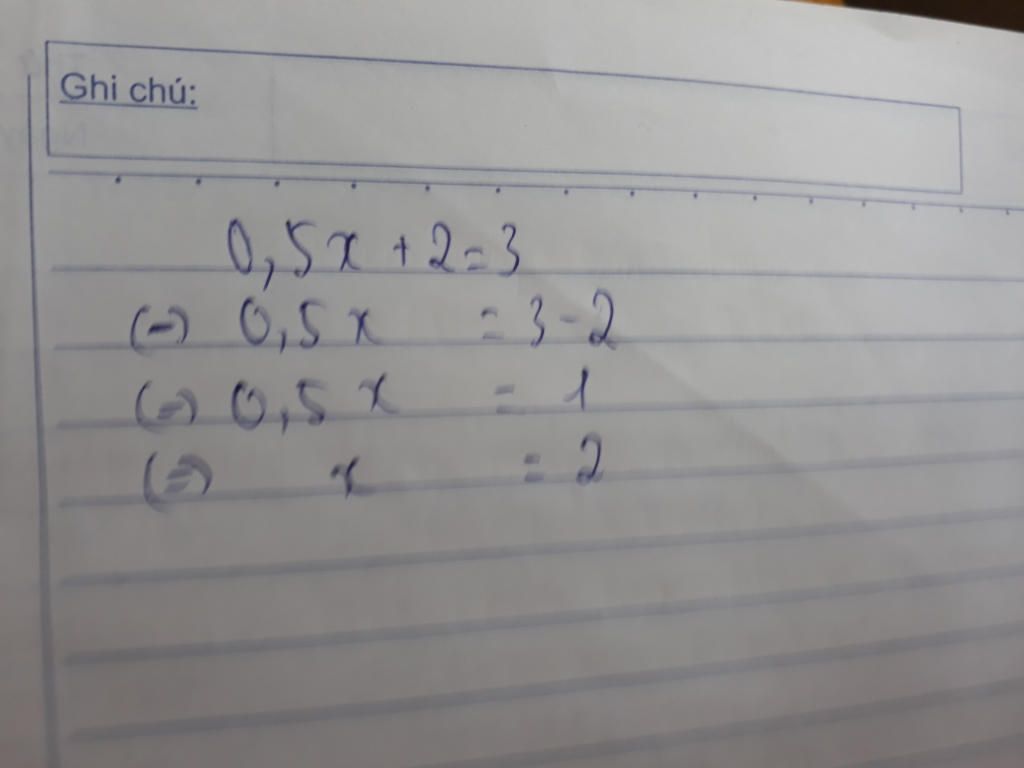 Ghi chú:
0,5x + 2 = 3
(=) 0,5x = 3 - 2
(=) 0,5x = 1
(=) x = 2